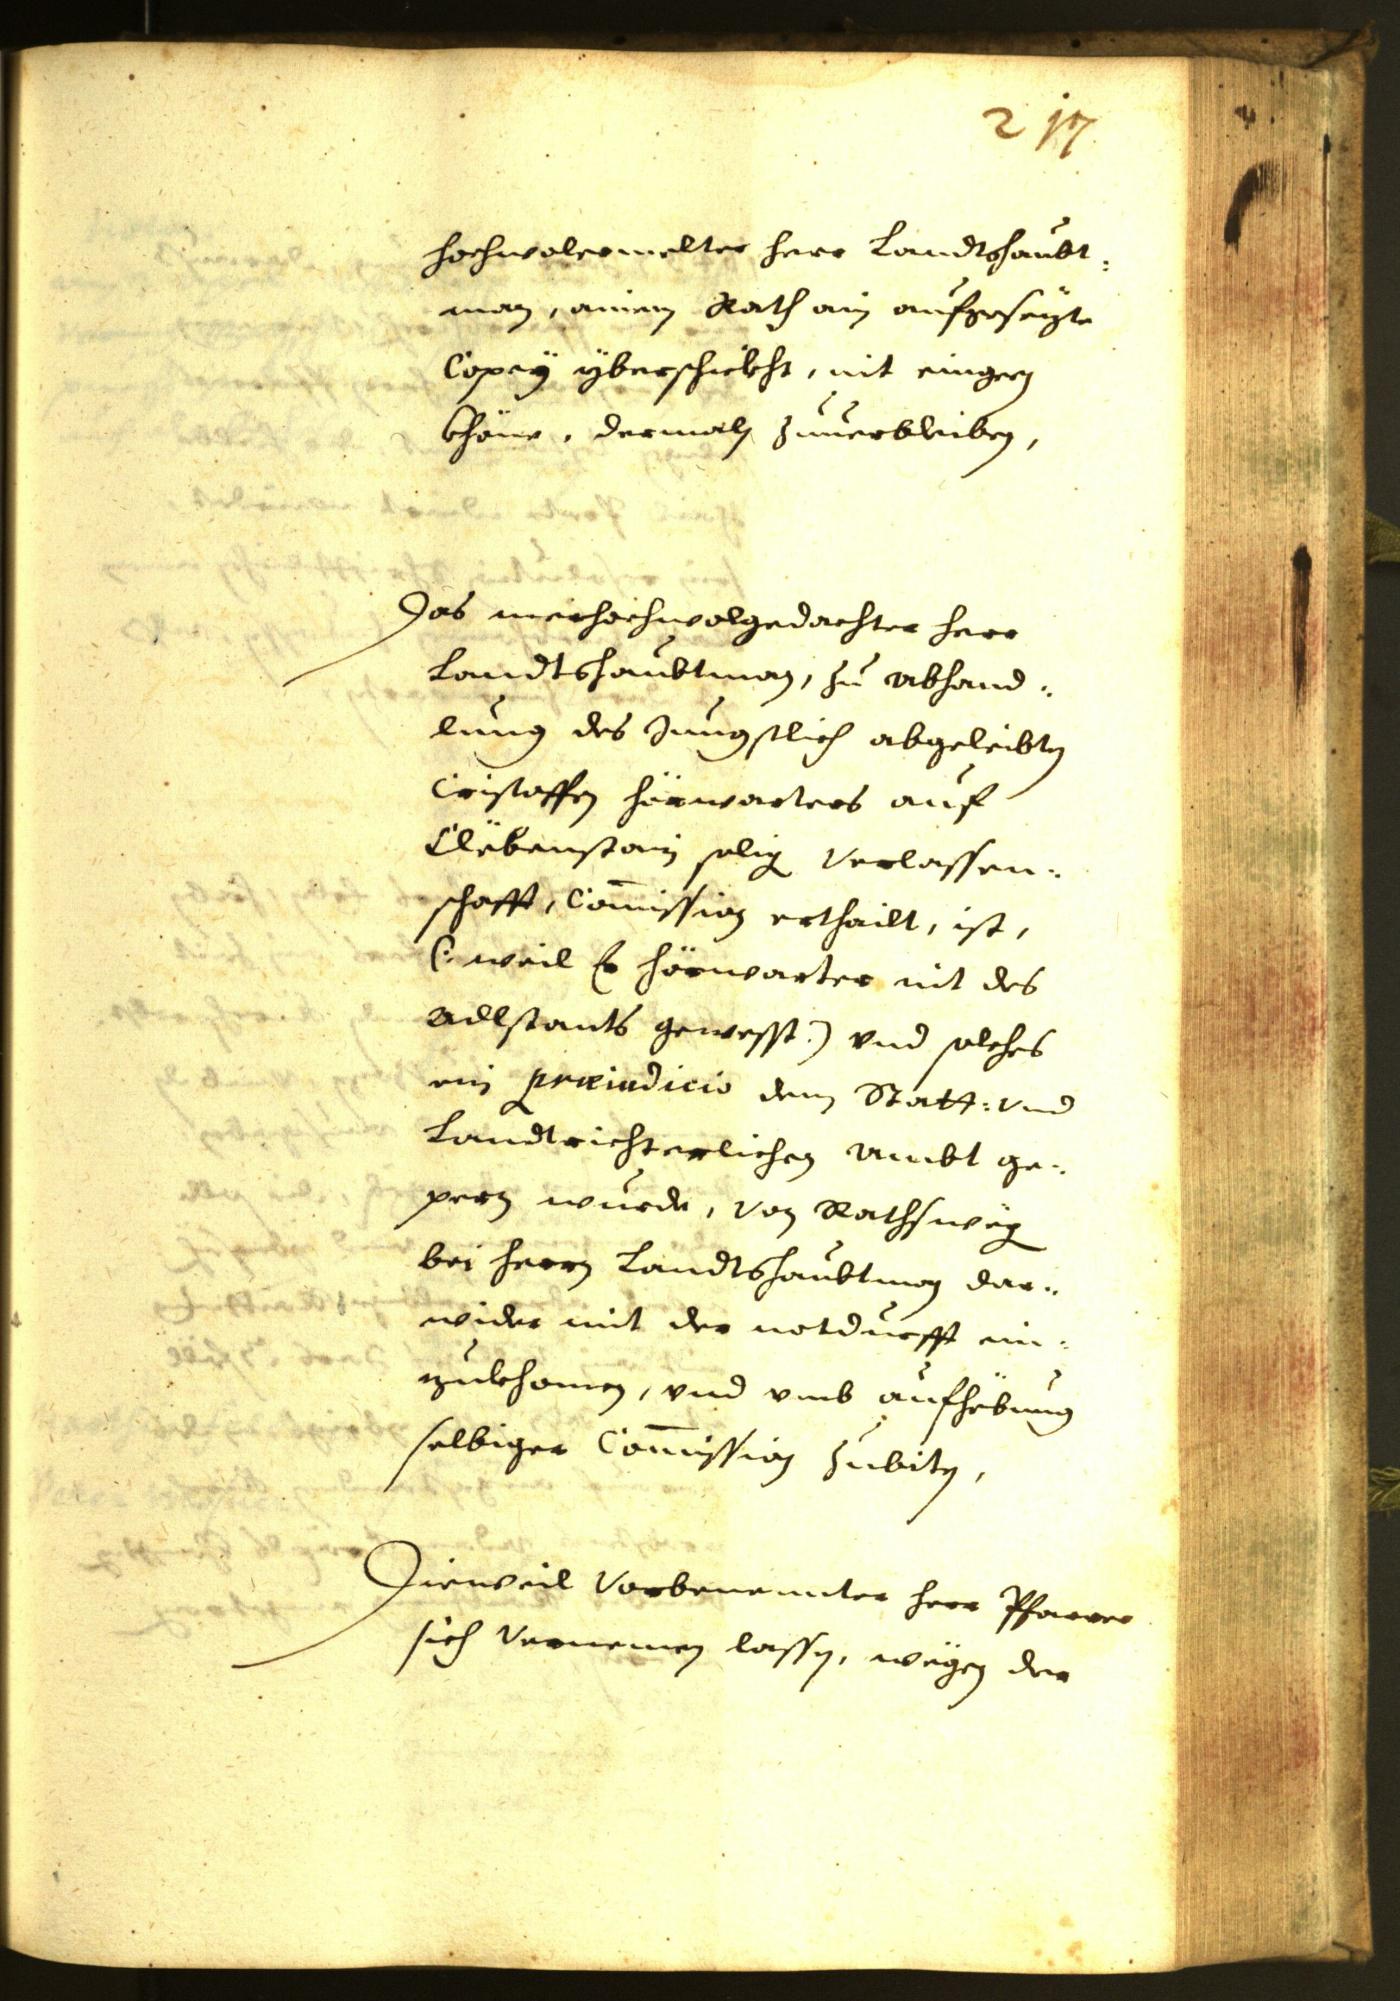 217
hochwolermelter herr Landtshaubt:
man, ainem Rath ain aufgesezte
Copey yberschickht, nit eingeen
khöne, dermaln zuuerbleiben,
Das merhochwolgedachter herr
Landtshaubtman, zu abhand:
lung des Jungstlich abgeleibten
Cristoffen Hörwarters auf
Clebenstain selig Verlassen:
schafft, Commission erthailt, ist,
(: weil Er Hörwarter nit des
Adlstants gewesst :) vnd solches
ein præiudicio dem Statt: vnd
Landtrichterlichen Ambt ge:
pern wurde, Von Rathsweg
bei herrn Landtshaubtman dar:
wider mit der notdurfft ein:
zukhomen, vnd vmb aufhebung
selbiger Commission zubiten,
Dieweil Vorbenennter herr Pfarrer
sich Vernemen lassen, wegen der